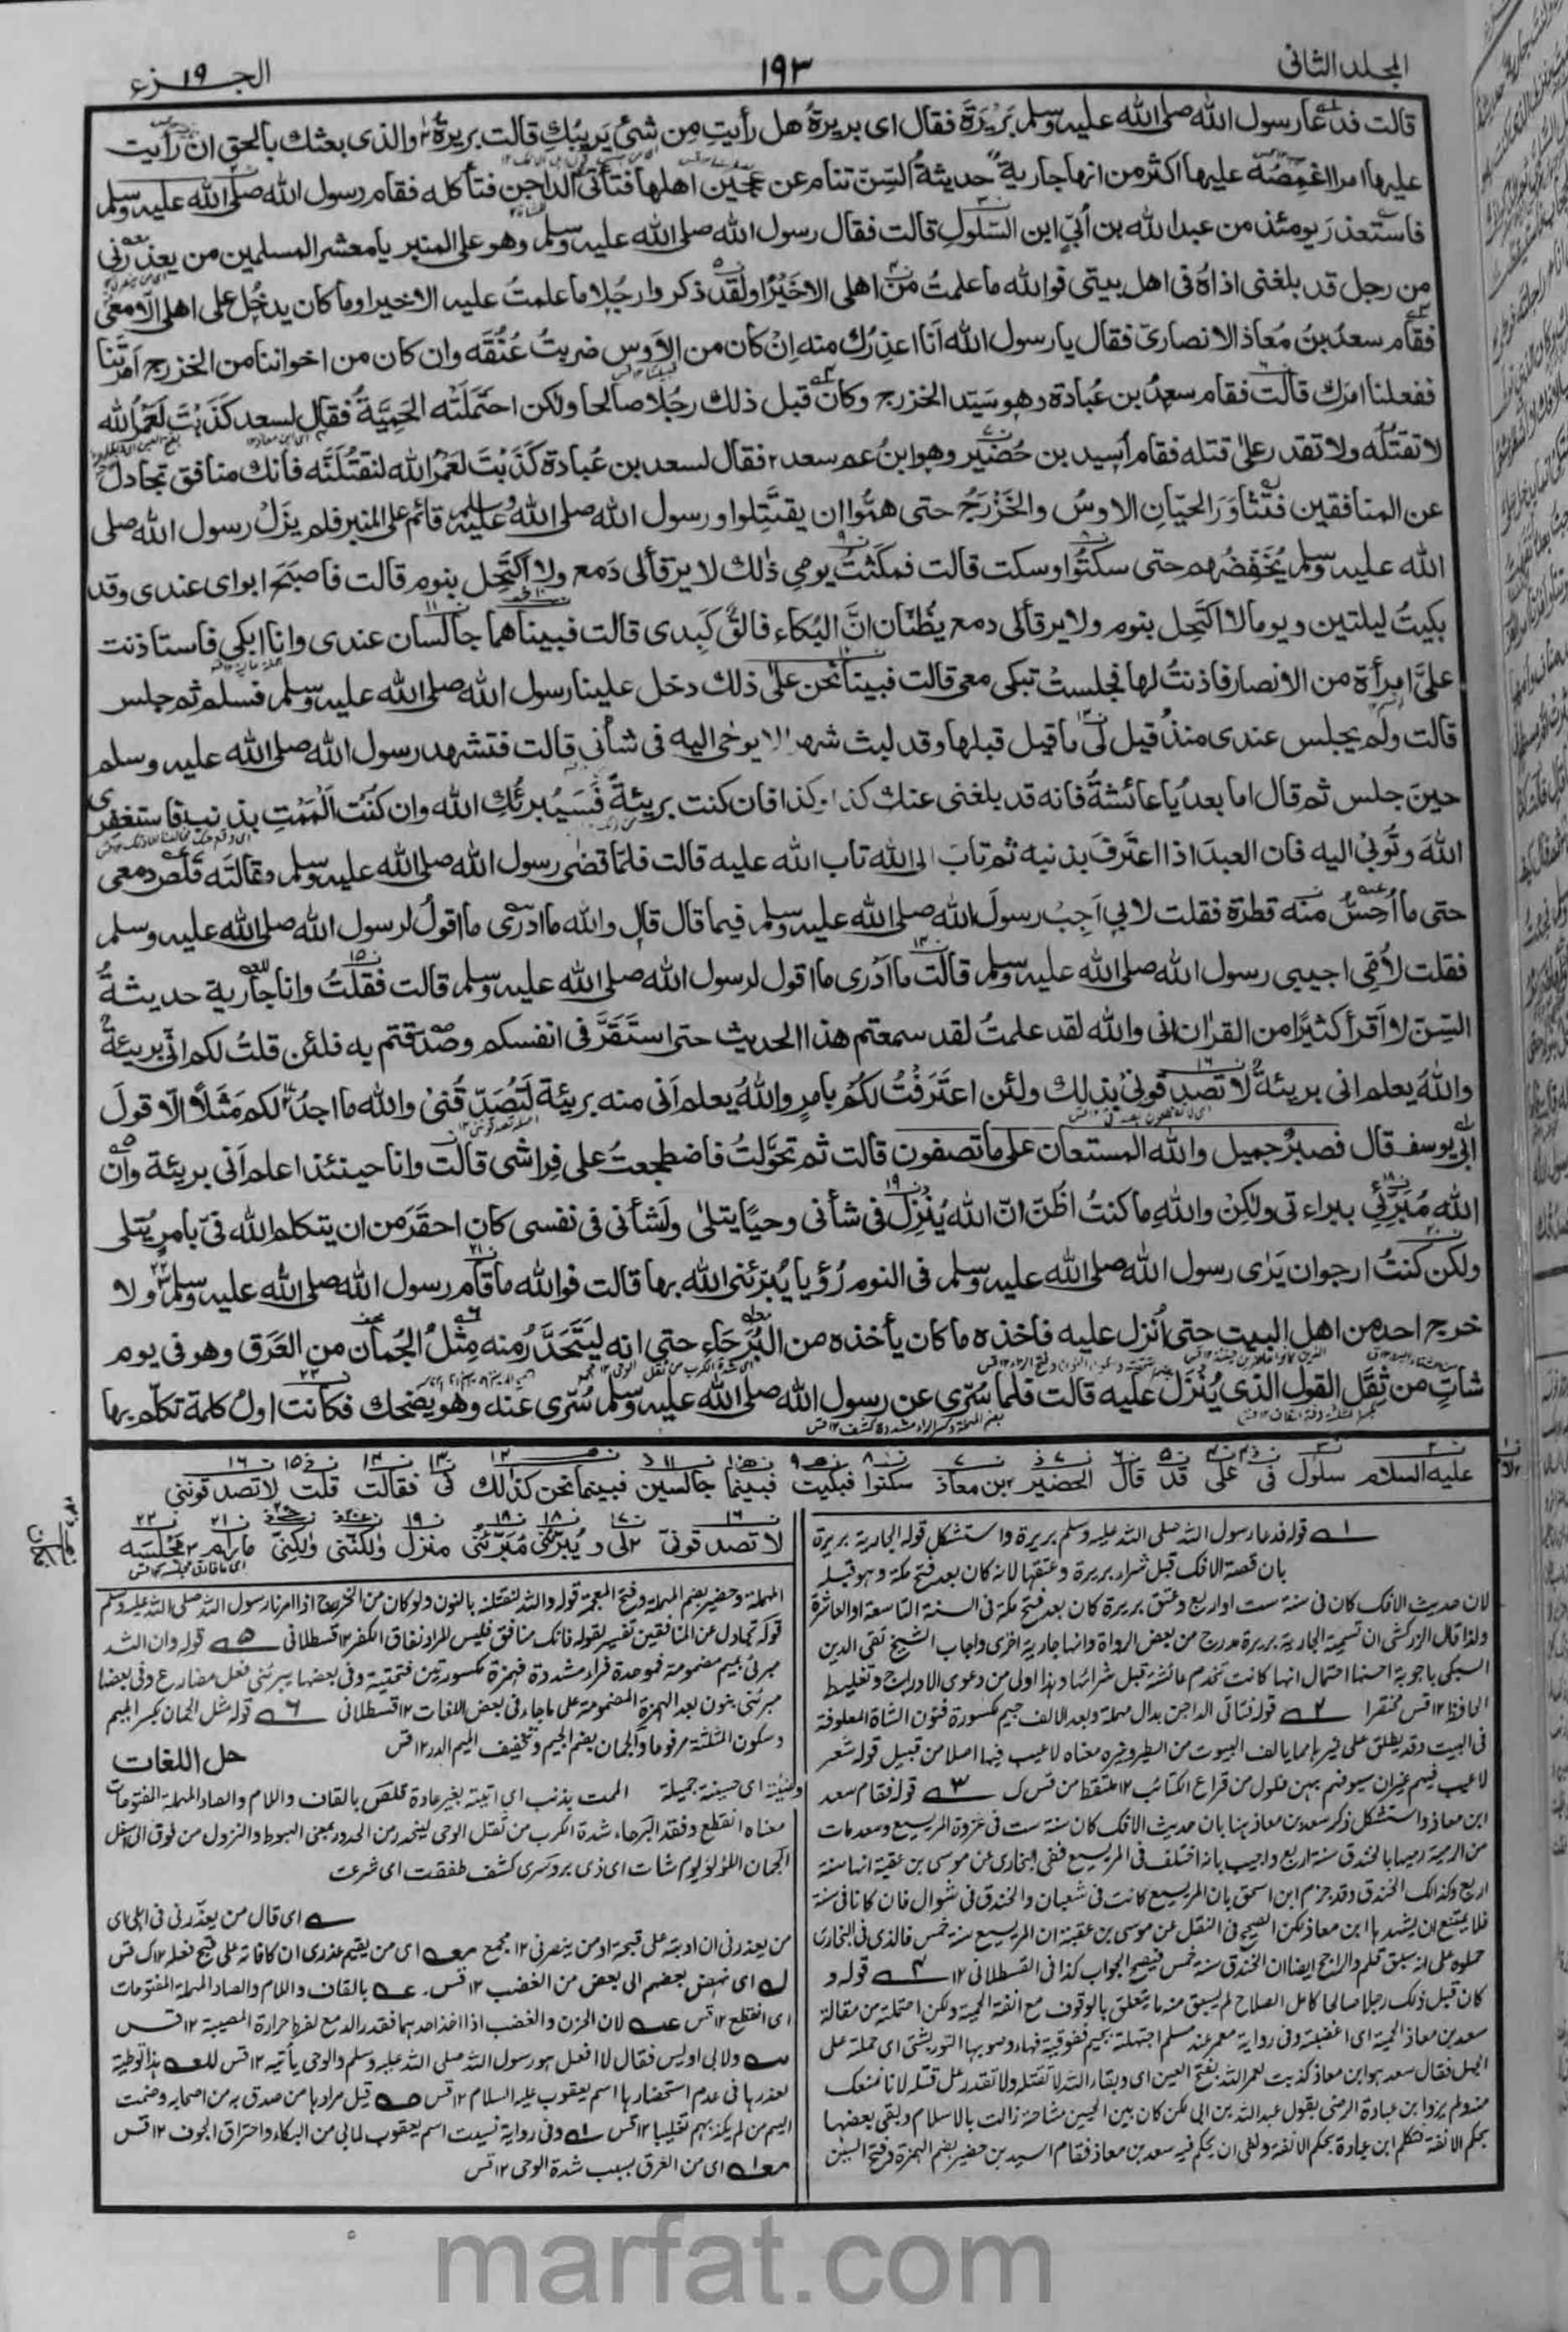 المجلد الثاني
١٩٣
الجزء ١٩
قالت فدعا رسول الله صلى الله عليه وسلم بَرِيْرَةَ فقال اى بريرةُ هل رأيتِ مِن شئ يَرِيبُكِ قالت بريرة والذى بعثك بالحق ان رأيت
عليها امرا اغمِصُه عليها اكثر من انها جارية حديثةُ السِّنّ تنام عن عجين اهلها فتأتى الداجن فتأكله فقام رسول الله صلى الله عليه وسلم
فاستعذر يومئذ من عبد الله بن أُبَيّ ابن السَّلُولِ قالت فقال رسول الله صلى الله عليه وسلم وهو على المنبر يا معشر المسلمين من يعذرنى
من رجل قد بلغنى اذاه فى اهل بيتى فوالله ما علمتُ من اهلى الا خَيْرًا ولقد ذكروا رجُلا ما علمتُ عليه الا خيرا وما كان يدخُل على اهلى الّا معى
فقام سعدُ بنُ مُعاذ الانصارىّ فقال يا رسول الله انا اعذِرُك منه اِنْ كان من الاَوس ضربتُ عُنُقَه وان كان من اخواننا من الخزرج اَمَرْتَنا
ففعلنا امرَك قالت فقام سعدُ بن عُبادة وهو سَيّد الخزرج وكان قبل ذلك رجُلا صالحا ولكن احتَمَلَتْه الحَمِيَّةُ فقال لسعد كَذَبْتَ لَعَمْرُ الله
لا تقتُلُه ولا تقدر على قتله فقام اُسيد بن حُضَير وهو ابنُ عم سعد فقال لسعد بن عُبادة كَذَبْتَ لعَمْرُ الله لنقتُلَنَّه فانك منافق تجادل
عن المنافقين فتَثاوَرَ الحيّانِ الاوسُ والخَزْرَجُ حتى همُّوا ان يقتَتِلوا ورسول الله صلى الله عليه وسلم قائم على المنبر فلم يزَل رسول الله صلى
الله عليه وسلم يُخَفِّضُهم حتى سكتُوا وسكت قالت فمكَثتُ يومى ذٰلك لا يرقأ لى دَمع ولا اكتَحِل بنوم قالت فاصبَحَ ابواى عندى وقد
بكيتُ ليلتين ويوما لا اكتَحِل بنوم ولا يرقأ لى دمع يظُنّان انَّ البُكاء فالق كَبِدى قالت فبينا هما جالسان عندى وانا ابكى فاستاذنت
علىَّ امرأة من الانصار فاذنتُ لها فجلستْ تبكى معى قالت فبينا نحن علٰى ذلك دخل علينا رسول الله صلى الله عليه وسلم فسلم ثم جلس
قالت ولم يجلس عندى منذُ قيل لى ما قيل قبلها وقد لبث شهرا لا يوحٰى اليه فى شأنى قالت فتشهد رسول الله صلى الله عليه وسلم
حينَ جلس ثم قال اما بعدُ يا عائشةُ فانه قد بلغنى عنك كذا وكذا فان كنت بريئةً فسَيُبرئكِ الله وان كنتِ اَلْمَمْتِ بذنب فاستغفرى
اللهَ وتُوبىْ اليه فان العبدَ اذا اعتَرَفَ بذنبه ثم تابَ الى الله تاب الله عليه قالت فلمّا قضٰى رسول الله صلى الله عليه وسلم مقالته قلَص دمعى
حتى ما اُحِسُّ منه قطرة فقلت لابى اَجِبْ رسولَ الله صلى الله عليه وسلم فيما قال قال والله ما ادرى ما اقولُ لرسول الله صلى الله عليه وسلم
فقلت لأمّى اجيبى رسول الله صلى الله عليه وسلم قالت ما اَدْرى ما اقول لرسول الله صلى الله عليه وسلم قالت فقلتُ وانا جارية حديثةُ
السِّنّ لا اَقرأ كثيرًا من القرٰان انى والله لقد علمتُ لقد سمعتم هذا الحديث حتى استَقَرَّ فى انفسكم وصدّقتم به فلئن قلتُ لكم انّى بريئةٌ
واللهُ يعلم انى بريئةٌ لا تصدقونى بذلك ولئن اعتَرَفْتُ لكُمْ بامرٍ واللهُ يعلم اَنى منه بريئة لَتُصَدِّقُنى والله ما اجدُ لكم مَثَلًا الّا قولَ
ابى يوسف قال فصبرٌ جميل والله المستعان على ما تصفون قالت ثم تحَوَّلتُ فاضطجعتُ على فِراشى قالت وانا حينئذ اعلم اَنى بريئة واَنّ
الله مُبَرِّئى ببراءتى ولٰكِنْ واللهِ ما كنتُ اظُنّ انّ الله يُنْزِل فى شأنى وحيًا يتلٰى ولَشأنى فى نفسى كان احقَرَ من ان يتكلم الله فىّ بامر يُتلٰى
ولكن كنتُ ارجو ان يَرٰى رسول الله صلى الله عليه وسلم فى النوم رُؤيا يُبَرّئنى الله بها قالت فوالله ما قام رسول الله صلى الله عليه وسلم ولا
خرج احد من اهل البيت حتى اُنزل عليه فاخذه ما كان يأخذه من البُرَحَاء حتى انه ليَتَحَدَّرُ منه مِثلُ الجُمان من العَرَق وهو فى يوم
شاتٍ من ثِقَل القول الذى يُنْزَل عليه قالت فلما سُرّى عن رسول الله صلى الله عليه وسلم سُرّى عنه وهو يضحك فكانت اولُ كلمة تكلّم بها
عليه السلام سلول فى على قد قال الحضير بن معاذ سكتوا فبكيت فبينما جالسين فبينما نحن كذلك لى فقالت قلت لا تصدقوننى
لا تصدقونىّ لى و يُبَرّئُنى مُبَرّئنى منزل ولكننى ولكنّى ما رام مجلسَه
قوله فدعا رسول الله صلى الله عليه وسلم بريرة واستشكل قوله الجارية بريرة
بان قصة الافك قبل شراء بريرة وعتقها لانه كان بعد فتح مكة وهو قبله
لان حديث الافك كان فى سنة ست او اربع وعتق بريرة كان بعد فتح مكة فى السنة التاسعة او العاشرة
ولذا قال الزركشى ان تسمية الجارية بريرة مدرج من بعض الرواة وانها جارية اخرى واجاب الشيخ تقى الدين
السبكى باجوبة احسنها احتمال انها كانت تخدم عائشة قبل شرائها وهذا اولى من دعوى الادراج وتغليط
الحافظ ١٢ قس مختصرا ٢ قوله فتأتى الداجن بدال مهملة وبعد الالف جيم مكسورة فنون الشاة المعلوفة
فى البيت وقد يطلق على غيرها مما يالف البيوت من الطير وغيره معناه لا عيب فيها اصلا من قبيل قوله شعر
لا عيب فيهم غير ان سيوفهم بهن فلول من قراع الكتائب ١٢ ملتقط من قس ك ٣ قوله فقام سعد
ابن معاذ واستشكل ذكر سعد بن معاذ هنا بان حديث الافك كان سنة ست فى غزوة المريسيع وسعد مات
من الرمية رميها بالخندق سنة اربع واجيب بانه اختلف فى المريسيع ففى البخارى عن موسى بن عقبة انها سنة
اربع وكذلك الخندق وقد جزم ابن اسحق بان المريسيع كانت فى شعبان والخندق فى شوال فان كانا فى سنة
فلا يمتنع ان يشهدها ابن معاذ لكن الصحيح فى النقل عن موسى بن عقبة ان المريسيع سنة خمس فالذى فى البخارى
حملوه على انه سبق قلم والراجح ايضا ان الخندق سنة خمس فيصح الجواب كذا فى القسطلانى ١٢ ٤ قوله و
كان قبل ذلك رجلا صالحا كامل الصلاح لم يسبق منه ما يتعلق بالوقوف مع انفة الحمية ولكن احتملته من مقالة
سعد بن معاذ الحمية اى اغضبته وفى رواية معمر عند مسلم اجتهلته بجيم ففوقية فهاء وصوبها التوربشتى اى حملته على
الجهل فقال سعد هو ابن معاذ كذبت لعمر الله بفتح العين اى وبقاء الله لا تقتله ولا تقدر على قتله لانا نمنعك
منه ولم يرد ابن عبادة الرضى بقول عبد الله بن ابى لكن كان بين الحيين مشاحنة زالت بالاسلام وبقى بعضها
بحكم الانفة فتكلم ابن عبادة بحكم الانفة ونفى ان يحكم فيه سعد بن معاذ فقام اسيد بن حضير بضم الهمزة وفتح السين
المهملة وحضير بضم المهملة وفتح المعجمة قوله والله لنقتلنه بالنون ولو كان من الخزرج اذا امرنا رسول الله صلى الله عليه وسلم
قوله تجادل عن المنافقين تفسير لقوله فانك منافق فليس المراد نفاق الكفر ١٢ قسطلانى ٥ قوله وان الله
مبرئى بميم مضمومة فموحدة فراء مشددة فهمزة مكسورتين فتحتية وفى بعضها يبرئنى فعل مضارع وفى بعضها
مبرئنى بنون بعد الهمزة المضمومة على ما جاء فى بعض اللغات ١٢ قسطلانى ٦ قوله مثل الجمان بكسر الميم
وسكون المثلثة مرفوعا والجمان بضم الجيم وتخفيف الميم الدر ١٢ قس
حل اللغات
وضيئة اى حسينة جميلة الممت بذنب اى اتيته بغير عادة قلص بالقاف واللام والصاد المهملة المفتوحات
معناه انقطع وفقد البرحاء شدة الكرب من ثقل الوحى ليتحدر من الحدور بمعنى الهبوط والنزول من فوق الى اسفل
الجمان اللؤلؤ يوم شات اى ذى برد سرى كشف طفقت اى شرعت
اى قال من يعذرنى فى اهلى اى
من يعذرنى ان ادبته على قبيحه او من ينصرنى ١٢ مجمع اى من يقيم عذرى ان كافاته على قبح فعله ١٢ ك قس
اى نهض بعضهم الى بعض من الغضب ١٢ قس بالقاف واللام والصاد المهملة المفتوحات
اى انقطع ١٢ قس لان الحزن والغضب اذا اخذ احدهما فقد الدمع لفرط حرارة المصيبة ١٢ قس
ولابى اويس فقال لا افعل هو رسول الله صلى الله عليه وسلم والوحى يأتيه ١٢ قس هذا توطية
لعذرها فى عدم استحضارها اسم يعقوب عليه السلام ١٢ قس قيل مرادها من صدق به من اصحابه وضمت
اليهم من لم يكذبهم تغليبا ١٢ قس وفى رواية نسيت اسم يعقوب لما بى من البكاء واحتراق الجوف ١٢ قس
اى من العرق بسبب شدة الوحى ١٢ قس
marfat.com